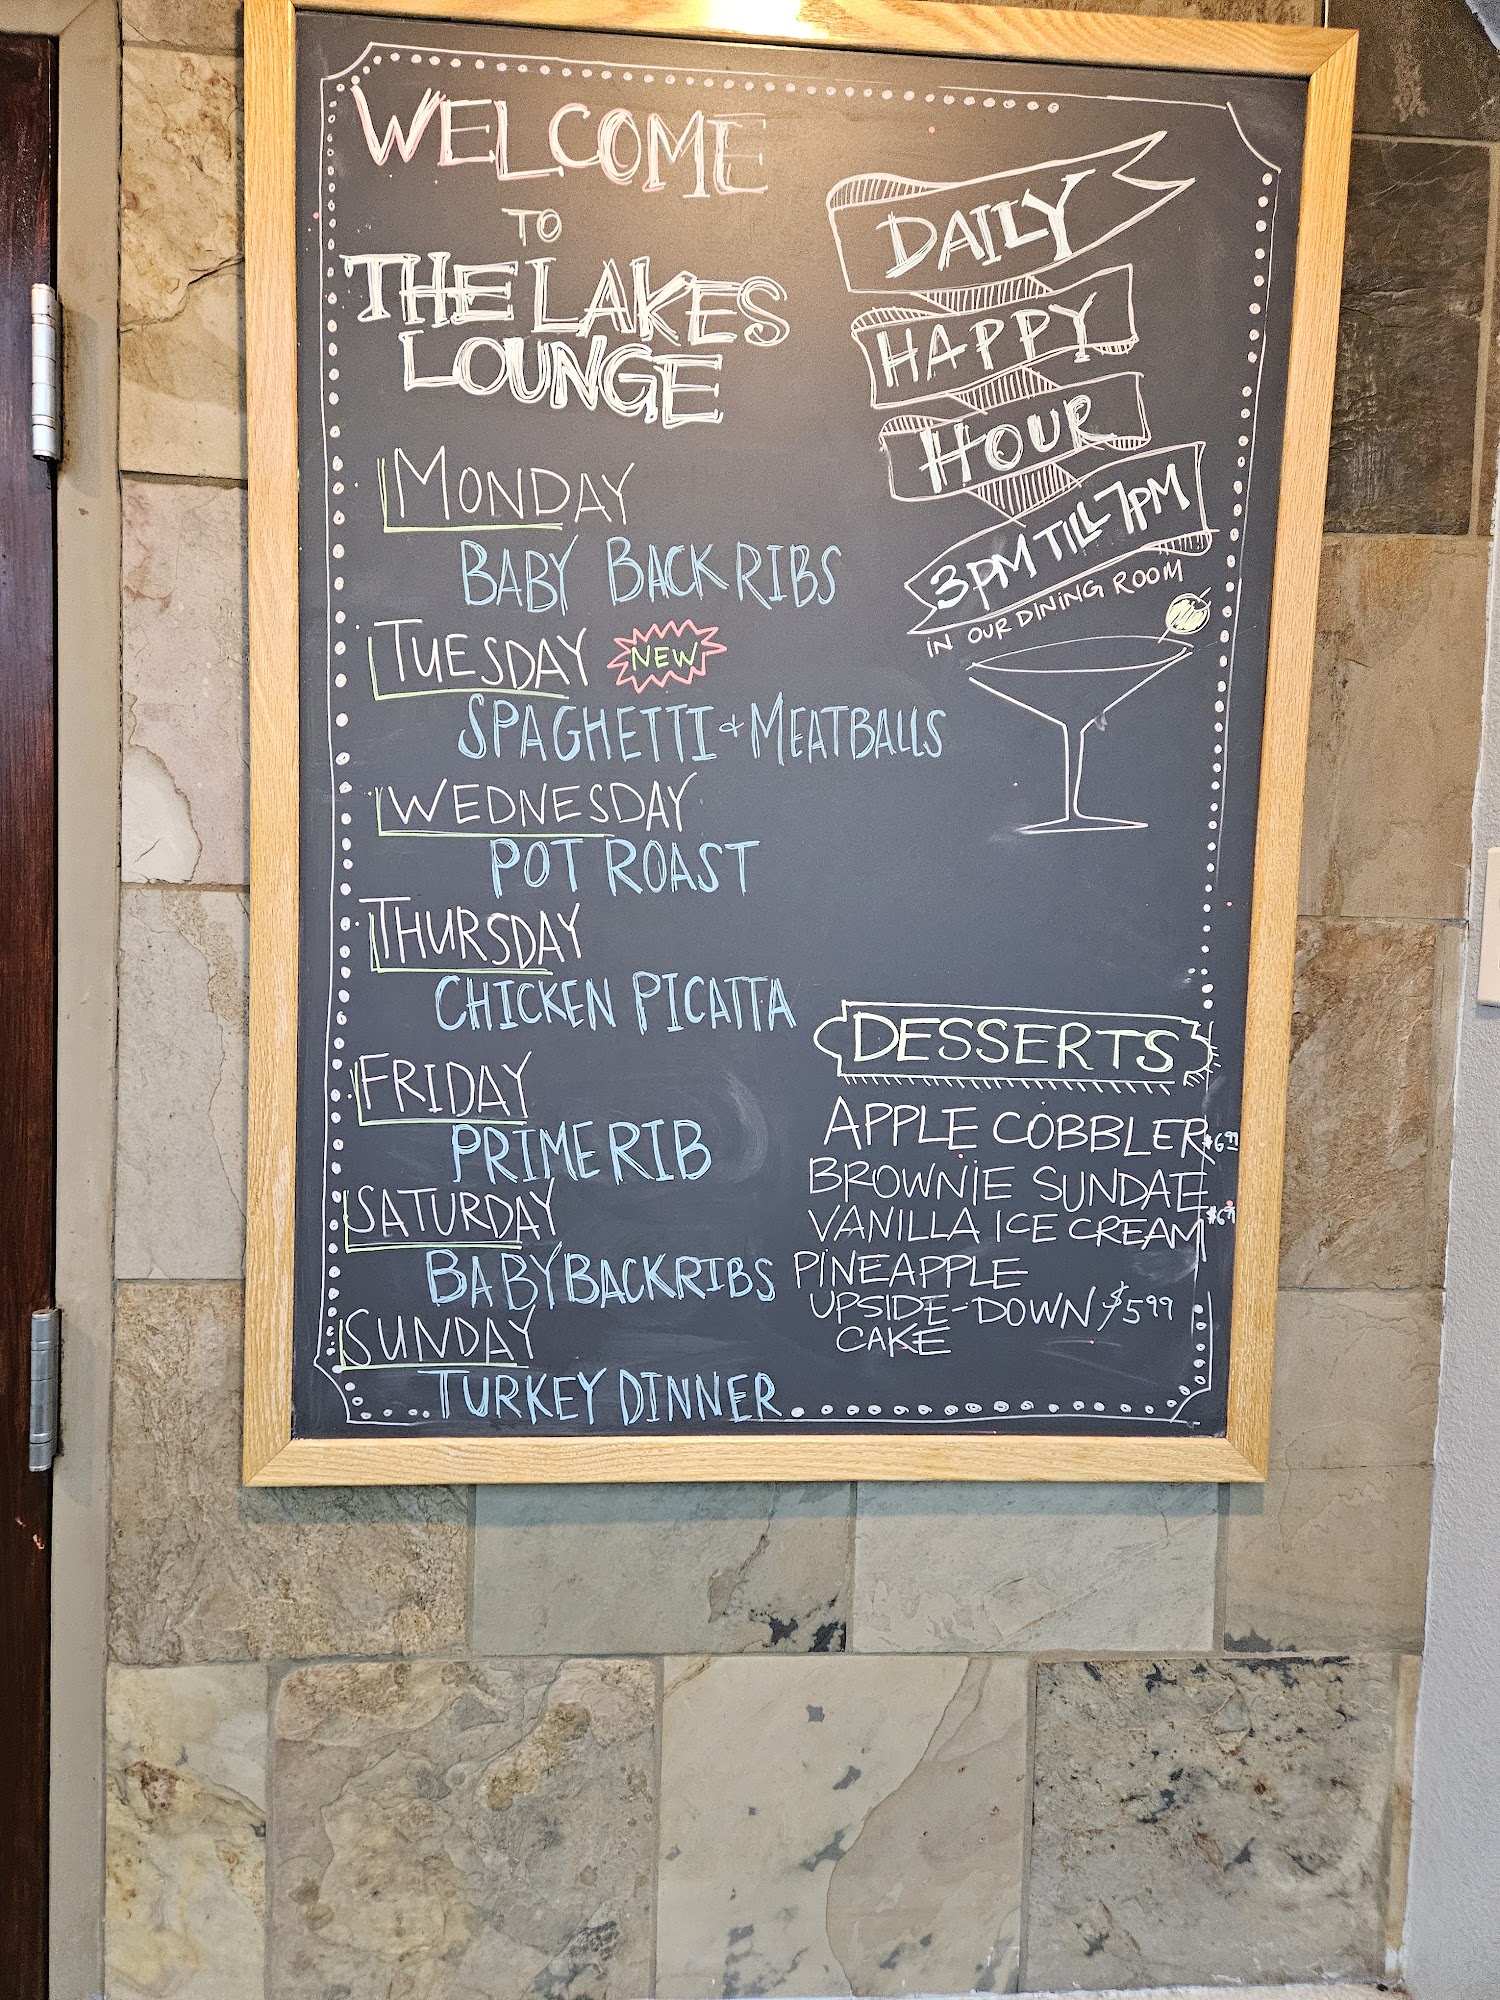 WELCOME
TO
THE LAKES
LOUNGE
MONDAY
BABY BACK RIBS
TUESDAY NEW
SPAGHETTI & MEATBALLS
WEDNESDAY
POT ROAST
THURSDAY
CHICKEN PICATTA
FRIDAY
PRIME RIB
SATURDAY
BABY BACK RIBS
SUNDAY
TURKEY DINNER
DAILY
HAPPY
HOUR
3PM TILL 7PM
IN OUR DINING ROOM
DESSERTS
APPLE COBBLER $6.99
BROWNIE SUNDAE
VANILLA ICE CREAM
PINEAPPLE
UPSIDE-DOWN $5.99
CAKE